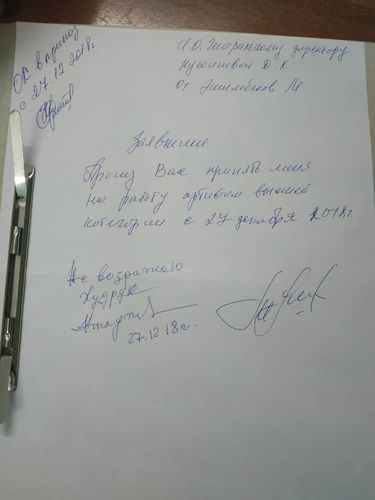 ОК в приказ
с 27.12.2018г
И.О. Генеральному директору
Д. К.
От
Заявление
Прошу Вас, принять меня
на работу артистом высшей
категории с 27 декабря 2018г.
Не возражаю
Худрук
27.12.18г.